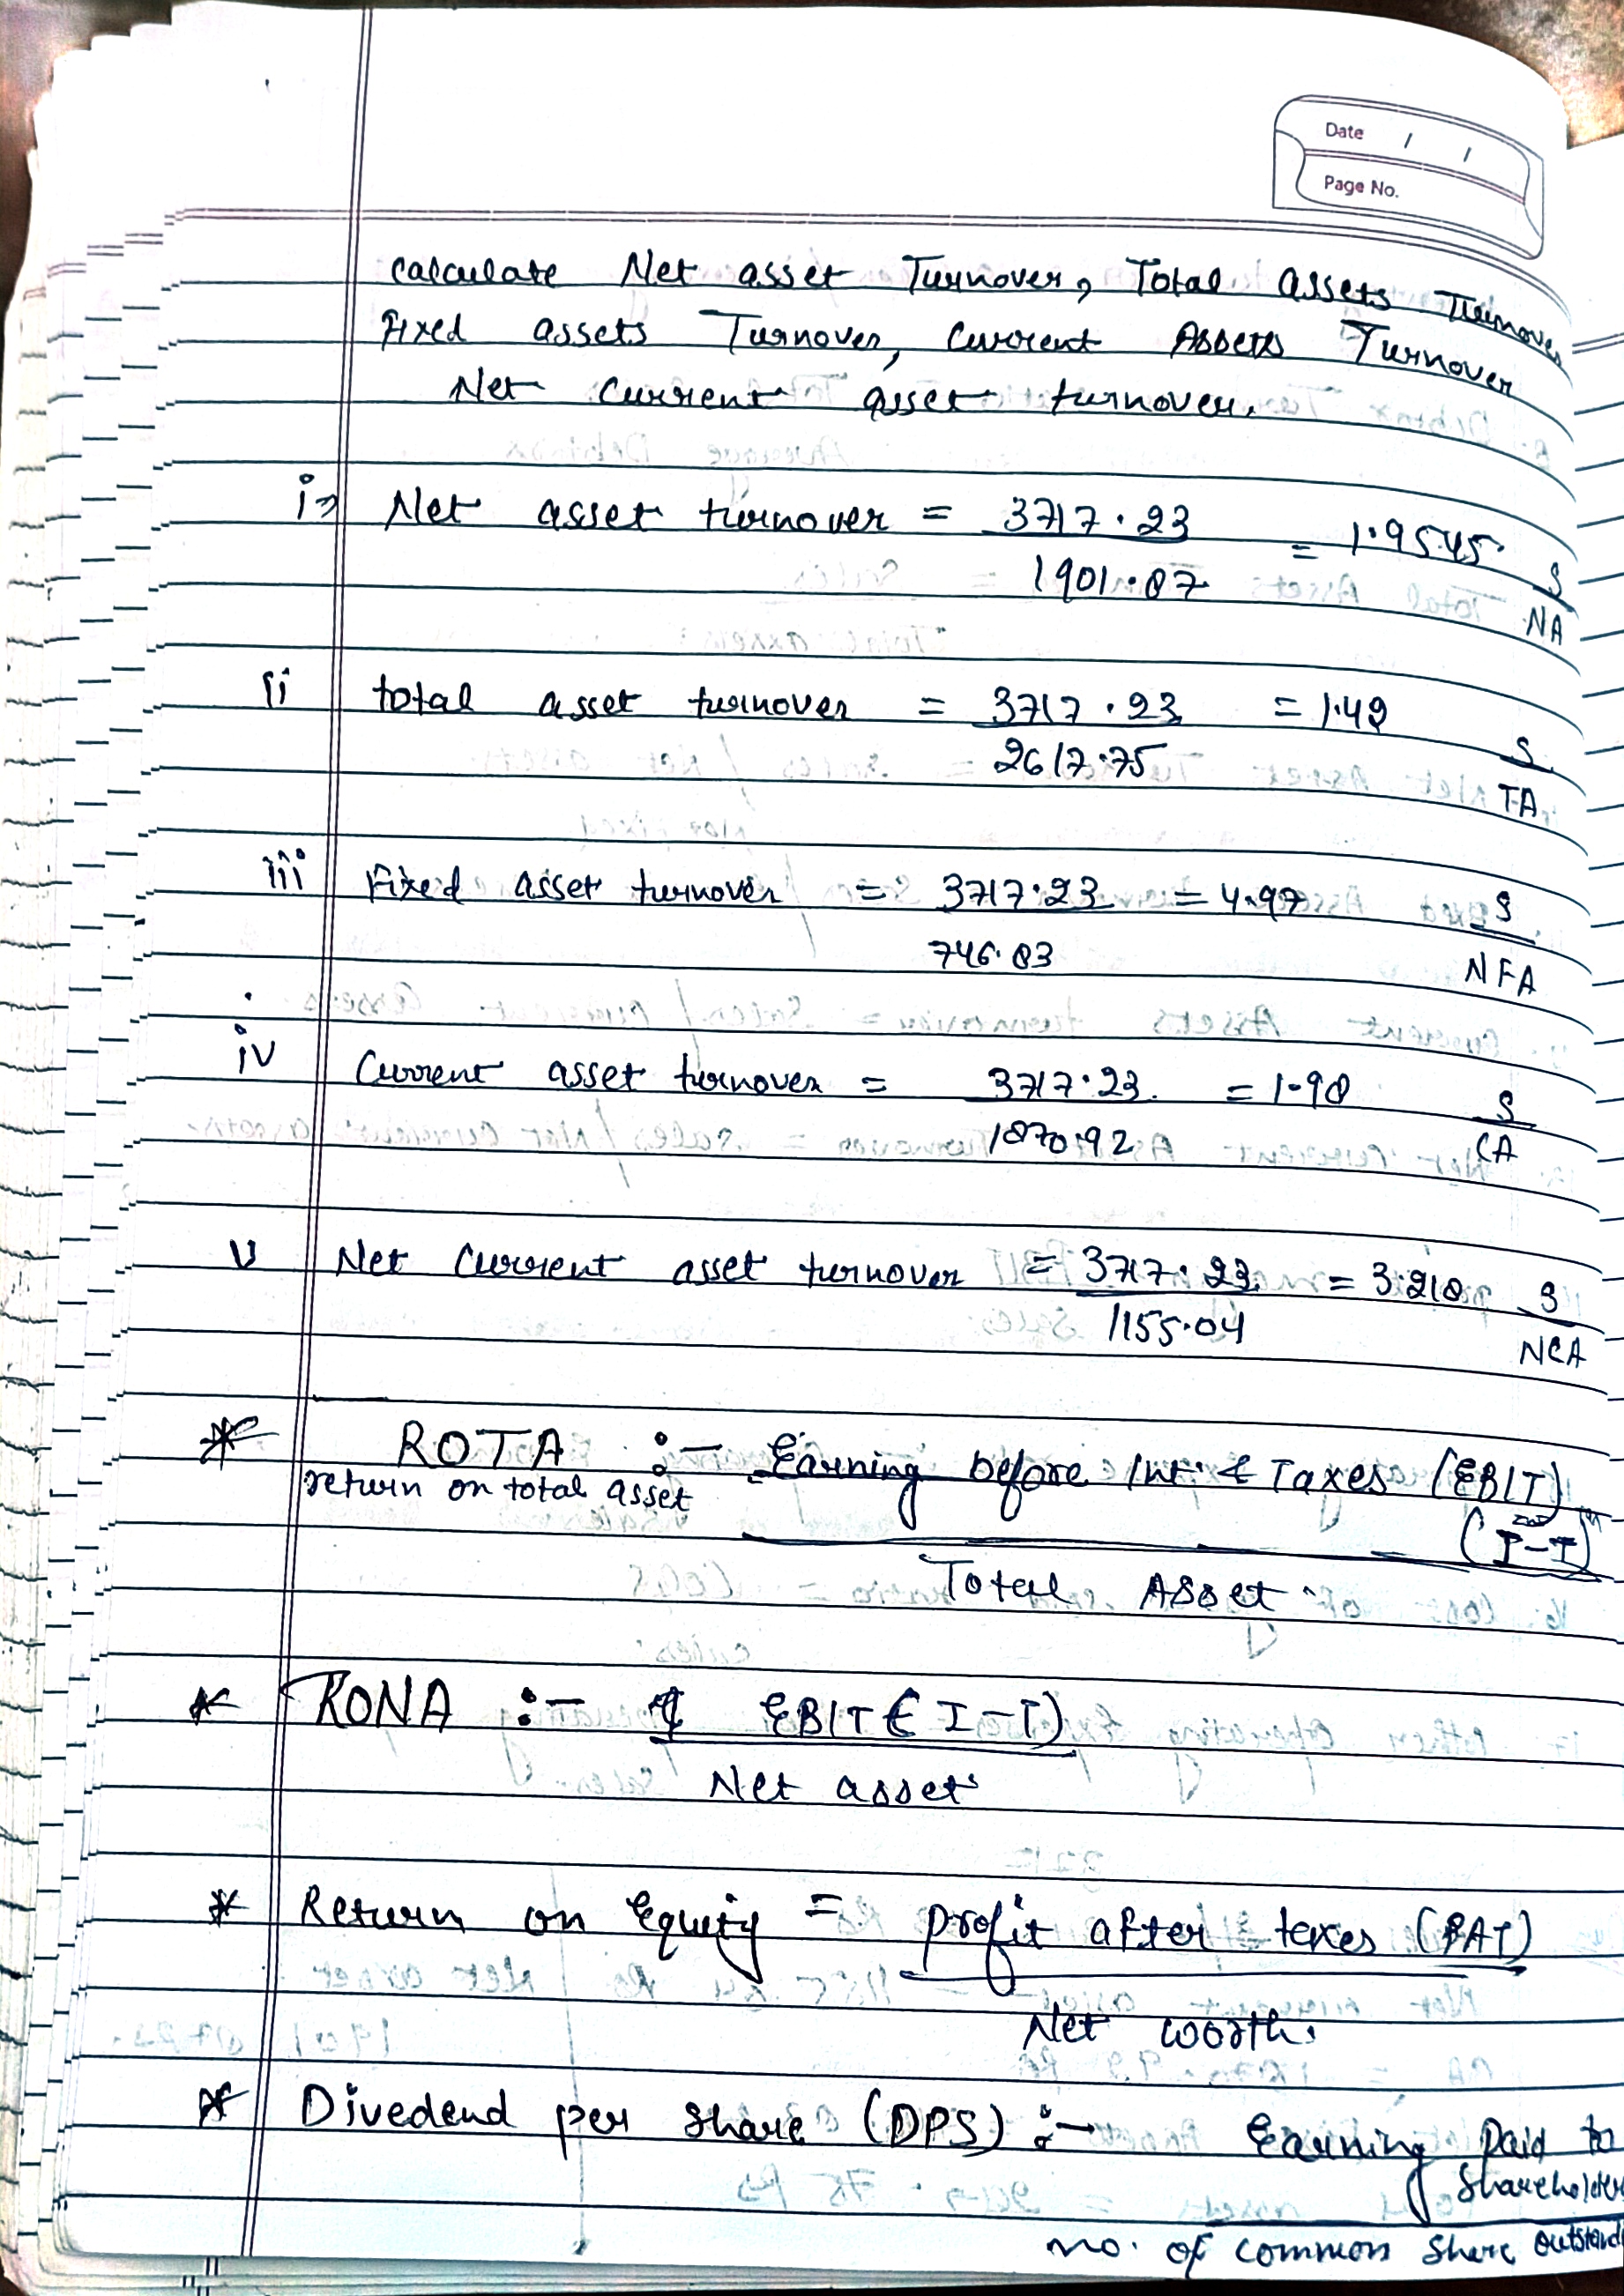 Date / /
Page No.
calculate Net asset Turnover, Total assets Turnover
Fixed assets Turnover, Current Assets Turnover
Net current asset turnover.
i> Net asset turnover = 3717.23 / 1901.87 = 1.9545 S/NA
ii total asset turnover = 3717.23 / 2617.75 = 1.42 S/TA
iii Fixed asset turnover = 3717.23 / 746.83 = 4.97 S/NFA
iv Current asset turnover = 3717.23 / 1870.92 = 1.98 S/CA
v Net Current asset turnover = 3717.23 / 1155.04 = 3.218 S/NCA
* ROTA :- Earning before Int. & Taxes (EBIT)
return on total asset (I-T)
Total Asset
* RONA :- EBIT (I-T)
Net asset
* Return on Equity = profit after texes (PAT)
Net worth.
* Divedend per share (DPS) :- Earning Paid to
Shareholder
no. of common share outstand